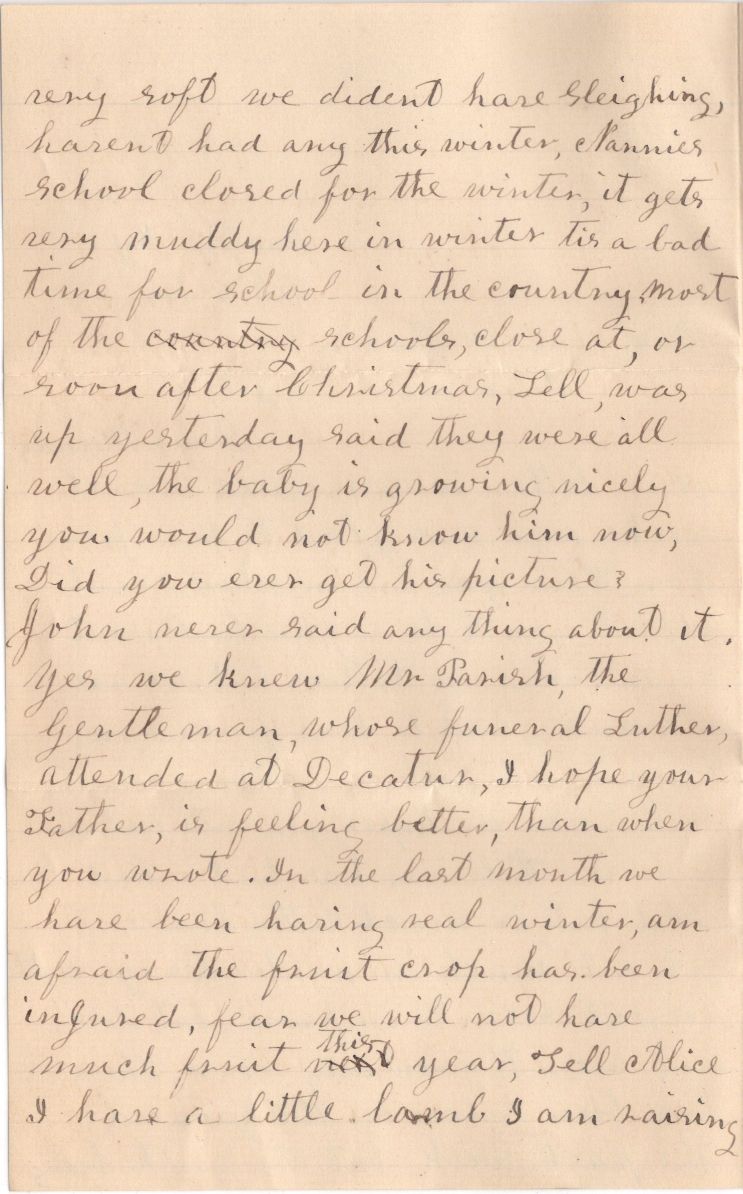 very soft we dident have Sleighing,
havent had any this winter, Nannies
school closed for the winter, it gets
very muddy here in winter tis a bad
time for school in the country, most
of the country schools, close at, or
soon after Christmas, Lell, was
up yesterday said they were all
well, the baby is growing nicely
you would not know him now,
Did you ever get his picture?
John never said any thing about it.
Yes we knew Mr Parish, the
Gentleman, whose funeral Luther,
attended at Decatur, I hope your
Father, is feeling better, than when
you wrote. In the last month we
have been having real winter, am
afraid the fruit crop has been
injured, fear we will not have
this
much fruit next year, Tell Alice
I have a little lamb I am raising